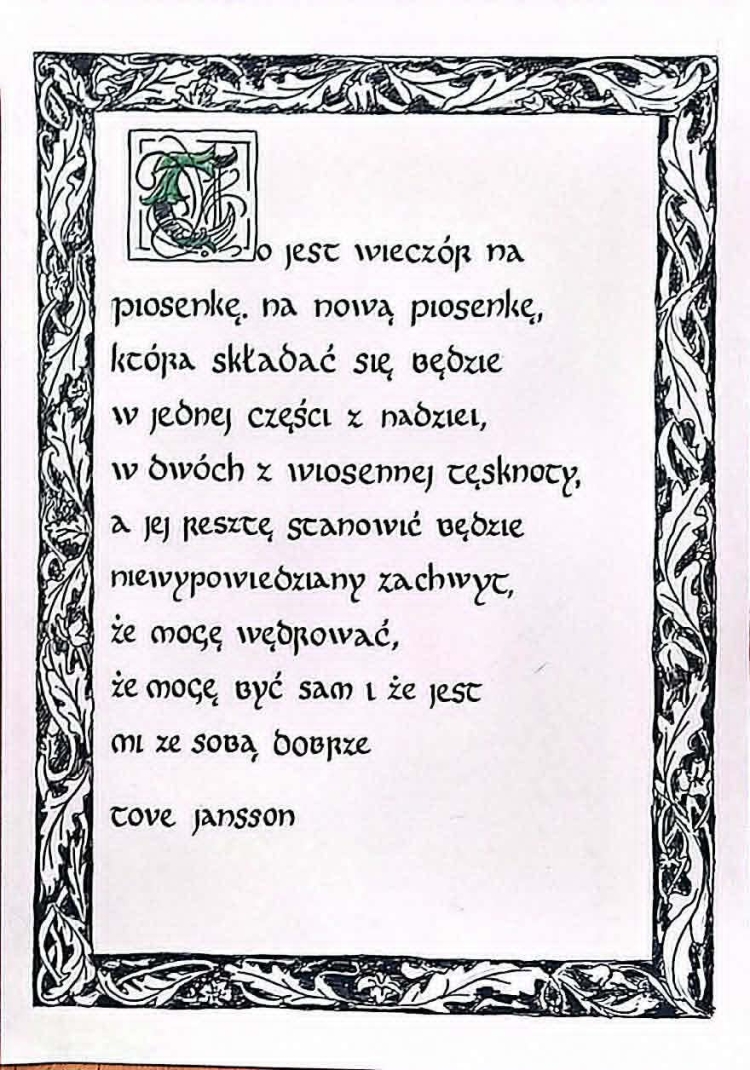 To jest wieczór na
piosenkę. na nową piosenkę,
która składać się będzie
w jednej części z nadziei,
w dwóch z wiosennej tęsknoty,
a jej resztę stanowić będzie
niewypowiedziany zachwyt,
że mogę wędrować,
że mogę być sam i że jest
mi ze sobą dobrze
tove jansson